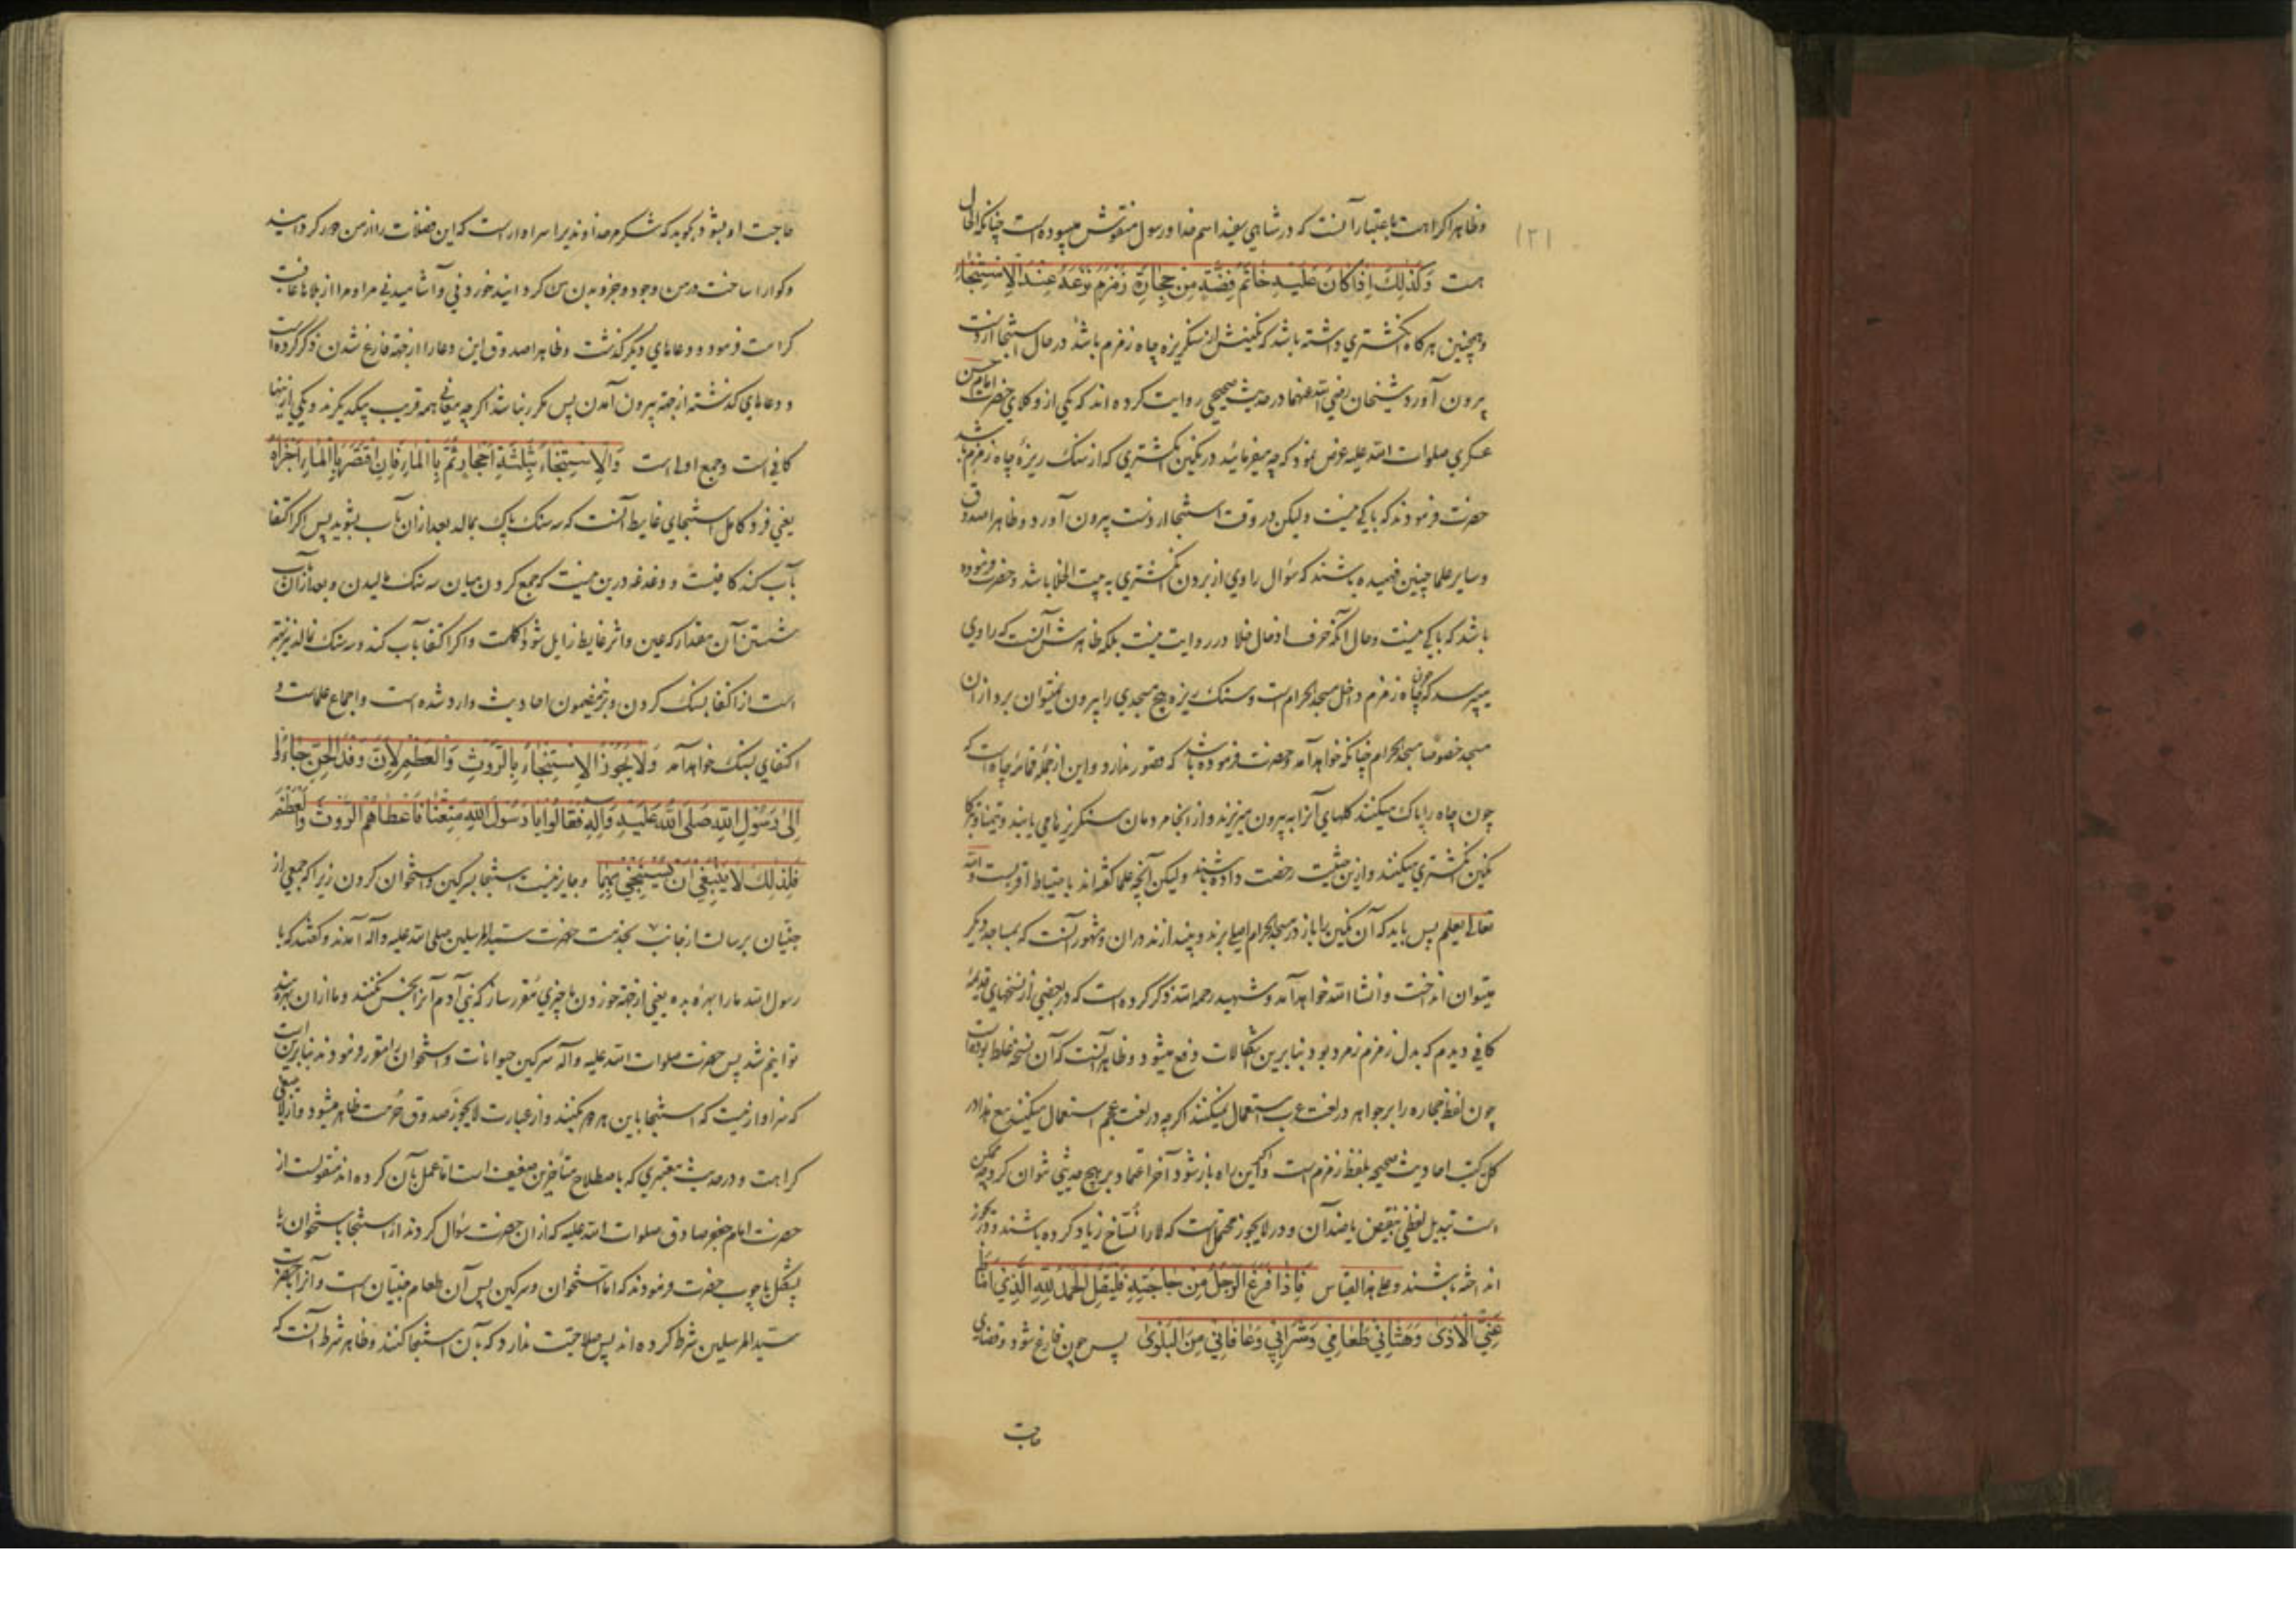 (۲۱)
وظاهرا کراهت باعتبار آنست که در شاهی سفید اسم خدا و رسول منقوش میبوده است چنانکه الحال
هست وَکَذٰلِكَ اِذٰا کٰانَ عَلَیْهِ خٰاتَمٌ فَصُّهُ مِنْ حِجٰارَةِ زَمْزَمَ نَزَعَهُ عِنْدَ الاِسْتِنْجٰاءِ
وهمچنین هرکاه انکشتری داشته باشد که نکینش از سنکریزه چاه زمزم باشد در حال استنجا از دست
بیرون آورد وشیخان رضی الله عنهما در حدیث صحیحی روایت کرده اند که یکی از وکلای حضرت امام حسن
عسکری صلوات الله علیه عرض نمود که چه میفرمائید در نکین انکشتری که از سنک ریزهٔ چاه زمزم باشد
حضرت فرمودند که باکی نیست ولیکن در وقت استنجا از دست بیرون آورد وظاهرا صدوق
وسایر علما چنین فهمیده باشند که سؤال راوی از بردن انکشتری به بیت الخلا باشد وحضرت فرموده
باشد که باکی نیست وحال آنکه حرف ادخال خلا در روایت نیست بلکه ظاهرش آنست که راوی
میپرسد که چون چاه زمزم داخل مسجد الحرام است وسنک ریزه هیچ مسجدی را بیرون نمیتوان برد از آن
مسجد خصوصا مسجد الحرام چنانکه خواهد آمد وحضرت فرموده باشد که قصور ندارد واین از جملهٔ قمامهٔ چاه است که
چون چاه را پاک میکنند کلهای آنرا به بیرون میریزند واز انجا مردمان سنکریزها می یابند وتیمنا وتبرکا
نکین انکشتری میکنند وازین حیثیت رخصت داده باشند ولیکن آنچه علما کفته اند باحتیاط اقربست والله
تعالی یعلم پس باید که آن نکین را باز در مسجد الحرام اصلی برند وبیندازند در ان ومشهور آنست که بمساجد دیکر
میتوان انداخت وانشا الله خواهد آمد وشهید رحمه الله ذکر کرده است که در بعضی از نسخهای قدیمهٔ
کافی دیدم که بدل زمزم زمرد بود وبنابرین اشکالات رفع میشود وظاهر آنست که آن نسخه غلط بوده است
چون لفظ حجاره را بر جواهر در لغت عرب استعمال نمیکنند اکرچه در لغت عجم استعمال میکنند مع هذا در
کل کتب احادیث صحیحه بلفظ زمزم است واکر این راه باز شود آخر اعتماد بر هیچ حدیثی نتوان کرد چه ممکن
است تبدیل لفظی بنقیض یا ضد آن ودر لا یجوز محتملست که لا را نساخ زیاد کرده باشند ودر یجوز
انداخته باشند وعلی هذا القیاس فَاِذٰا فَرَغَ الرَّجُلُ مِنْ حٰاجَتِهِ فَلْیَقُلْ اَلْحَمْدُ لِلّٰهِ الَّذٖی اَمٰاطَ
عَنِّی الْاَذٰی وَهَنَّاَنٖی طَعٰامٖی وَشَرٰابٖی وَعٰافٰانٖی مِنَ الْبَلْوٰی پس چون فارغ شود وقضای
حاجت
حاجت او بشود بکوید که شکر مر خداوندیرا سزاوار است که این فضلات را از من دور کردانید
وکوارا ساخت در من وجود وجزو بدن من کردانید خوردنی وآشامیدنی مرا ومرا از بلاها عافیت
کرامت فرمود ودعاهای دیکر کذشت وظاهرا صدوق این دعا را از جهة فارغ شدن ذکر کرده است
ودعاهای کذشته از جهة بیرون آمدن پس مکرر نباشد اکرچه معانی همه قریب بیکدیکرند ویکی از اینها
کافی است وجمع اولی است وَالاِسْتِنْجٰاءُ بِثَلٰثَةِ اَحْجٰارٍ ثُمَّ بِالْمٰاءِ فَاِنِ اقْتَصَرَ بِالْمٰاءِ اَجْزَاَهُ
یعنی فرد کامل استنجای غایط آنست که سه سنک پاک بماله بعد از ان باب بشوید پس اکر اکتفا
بآب کند کافیست ودغدغه درین نیست که جمع کردن میان سه سنک مالیدن وبعد از ان باب
شستن آن مقدار که عین واثر غایط زایل شود اکملست واکر اکتفا بآب کند وسه سنک نماله نیز بهتر
است از اکتفا بسنک کردن وبرینمضمون احادیث وارد شده است واجماع علماست و
اکتفای بسنک خواهد آمد وَلاٰ یَجُوزُ الاِسْتِنْجٰاءُ بِالرَّوْثِ وَالْعَظْمِ لِاَنَّ وَفْدَ الْجِنِّ جٰاءُوا
اِلٰی رَسُولِ اللّٰهِ صَلَّی اللّٰهُ عَلَیْهِ وَاٰلِهِ فَقٰالُوا یٰا رَسُولَ اللّٰهِ مَتِّعْنٰا فَاَعْطٰاهُمُ الرَّوْثَ وَالْعَظْمَ
فَلِذٰلِكَ لاٰ یَنْبَغٖی اَنْ یُسْتَنْجٰی بِهِمٰا وجایز نیست استنجا بسرکین واستخوان کردن زیرا که جمعی از
جنیان برسالت از جانب بخدمت حضرت سید المرسلین صلی الله علیه وآله آمدند وکفتند که یا
رسول الله ما را بهره بده یعنی از جهة خوردن ما چیزی مقرر ساز که بنی آدم آنرا نجس نکنند وما از ان بهره مند
توانیم شد پس حضرت صلوات الله علیه وآله سرکین حیوانات واستخوان را مقرر فرمودند بنابرین است
که سزاوار نیست که استنجا باین هر دو بکنند واز عبارت لا یجوز صدوق حرمت ظاهر میشود واز لا ینبغی
کراهت ودر حدیث معتبری که باصطلاح متأخرین ضعیف است اما عمل بآن کرده اند منقولست از
حضرت امام جعفر صادق صلوات الله علیه که از ان حضرت سؤال کردند از استنجا باستخوان یا
پشکل یا چوب حضرت فرمودند که اما استخوان وسرکین پس آن طعام جنیان است وآنرا بحضرت
سید المرسلین شرط کرده اند پس صلاحیت ندارد که بآن استنجا کنند وظاهر شرط آنست که